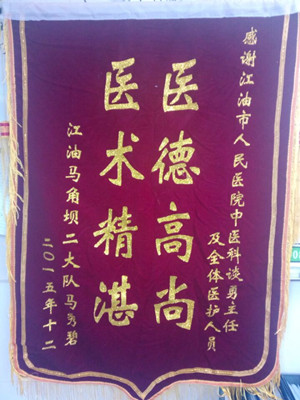 感谢江油市人民医院中医科谈勇主任
及全体医护人员
医德高尚
医术精湛
江油马角坝二大队马秀碧
二〇一五年十二